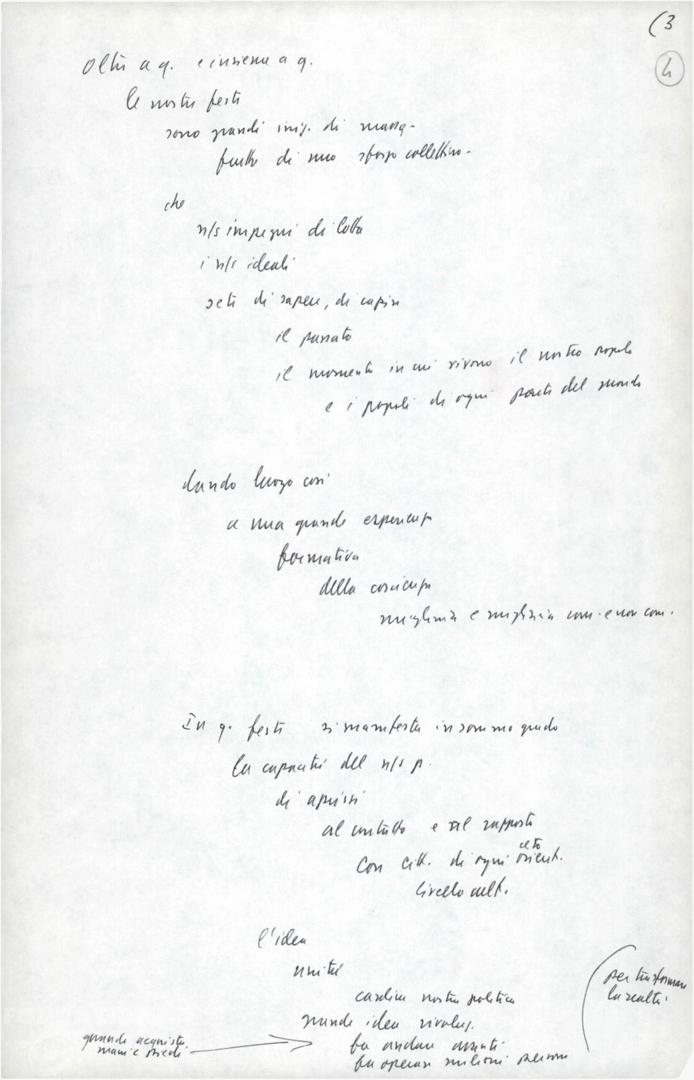 (3
4
Oltre a q. e insieme a q.
le nostre feste
sono grandi iniz. di massa
frutto di uno sforzo collettivo
che
n/s impegni di lotta
i n/s ideali
sete di sapere, di capire
il passato
il momento in cui vivono il nostro popolo
e i popoli di ogni parte del mondo
dando luogo così
a una grande esperienza
formativa
della coscienza
migliaia e migliaia com. e non com.
In q. feste si manifesta in sommo grado
la capacità del n/s p.
di aprirsi
al contatto e al rapporto
con citt. di ogni età
orient.
livello cult.
l'idea
unità
cardine nostra politica
grande idea rivoluz.
quando acquista
mani e piedi
fa andare avanti
fa operare milioni persone
per trasformare
la realtà.